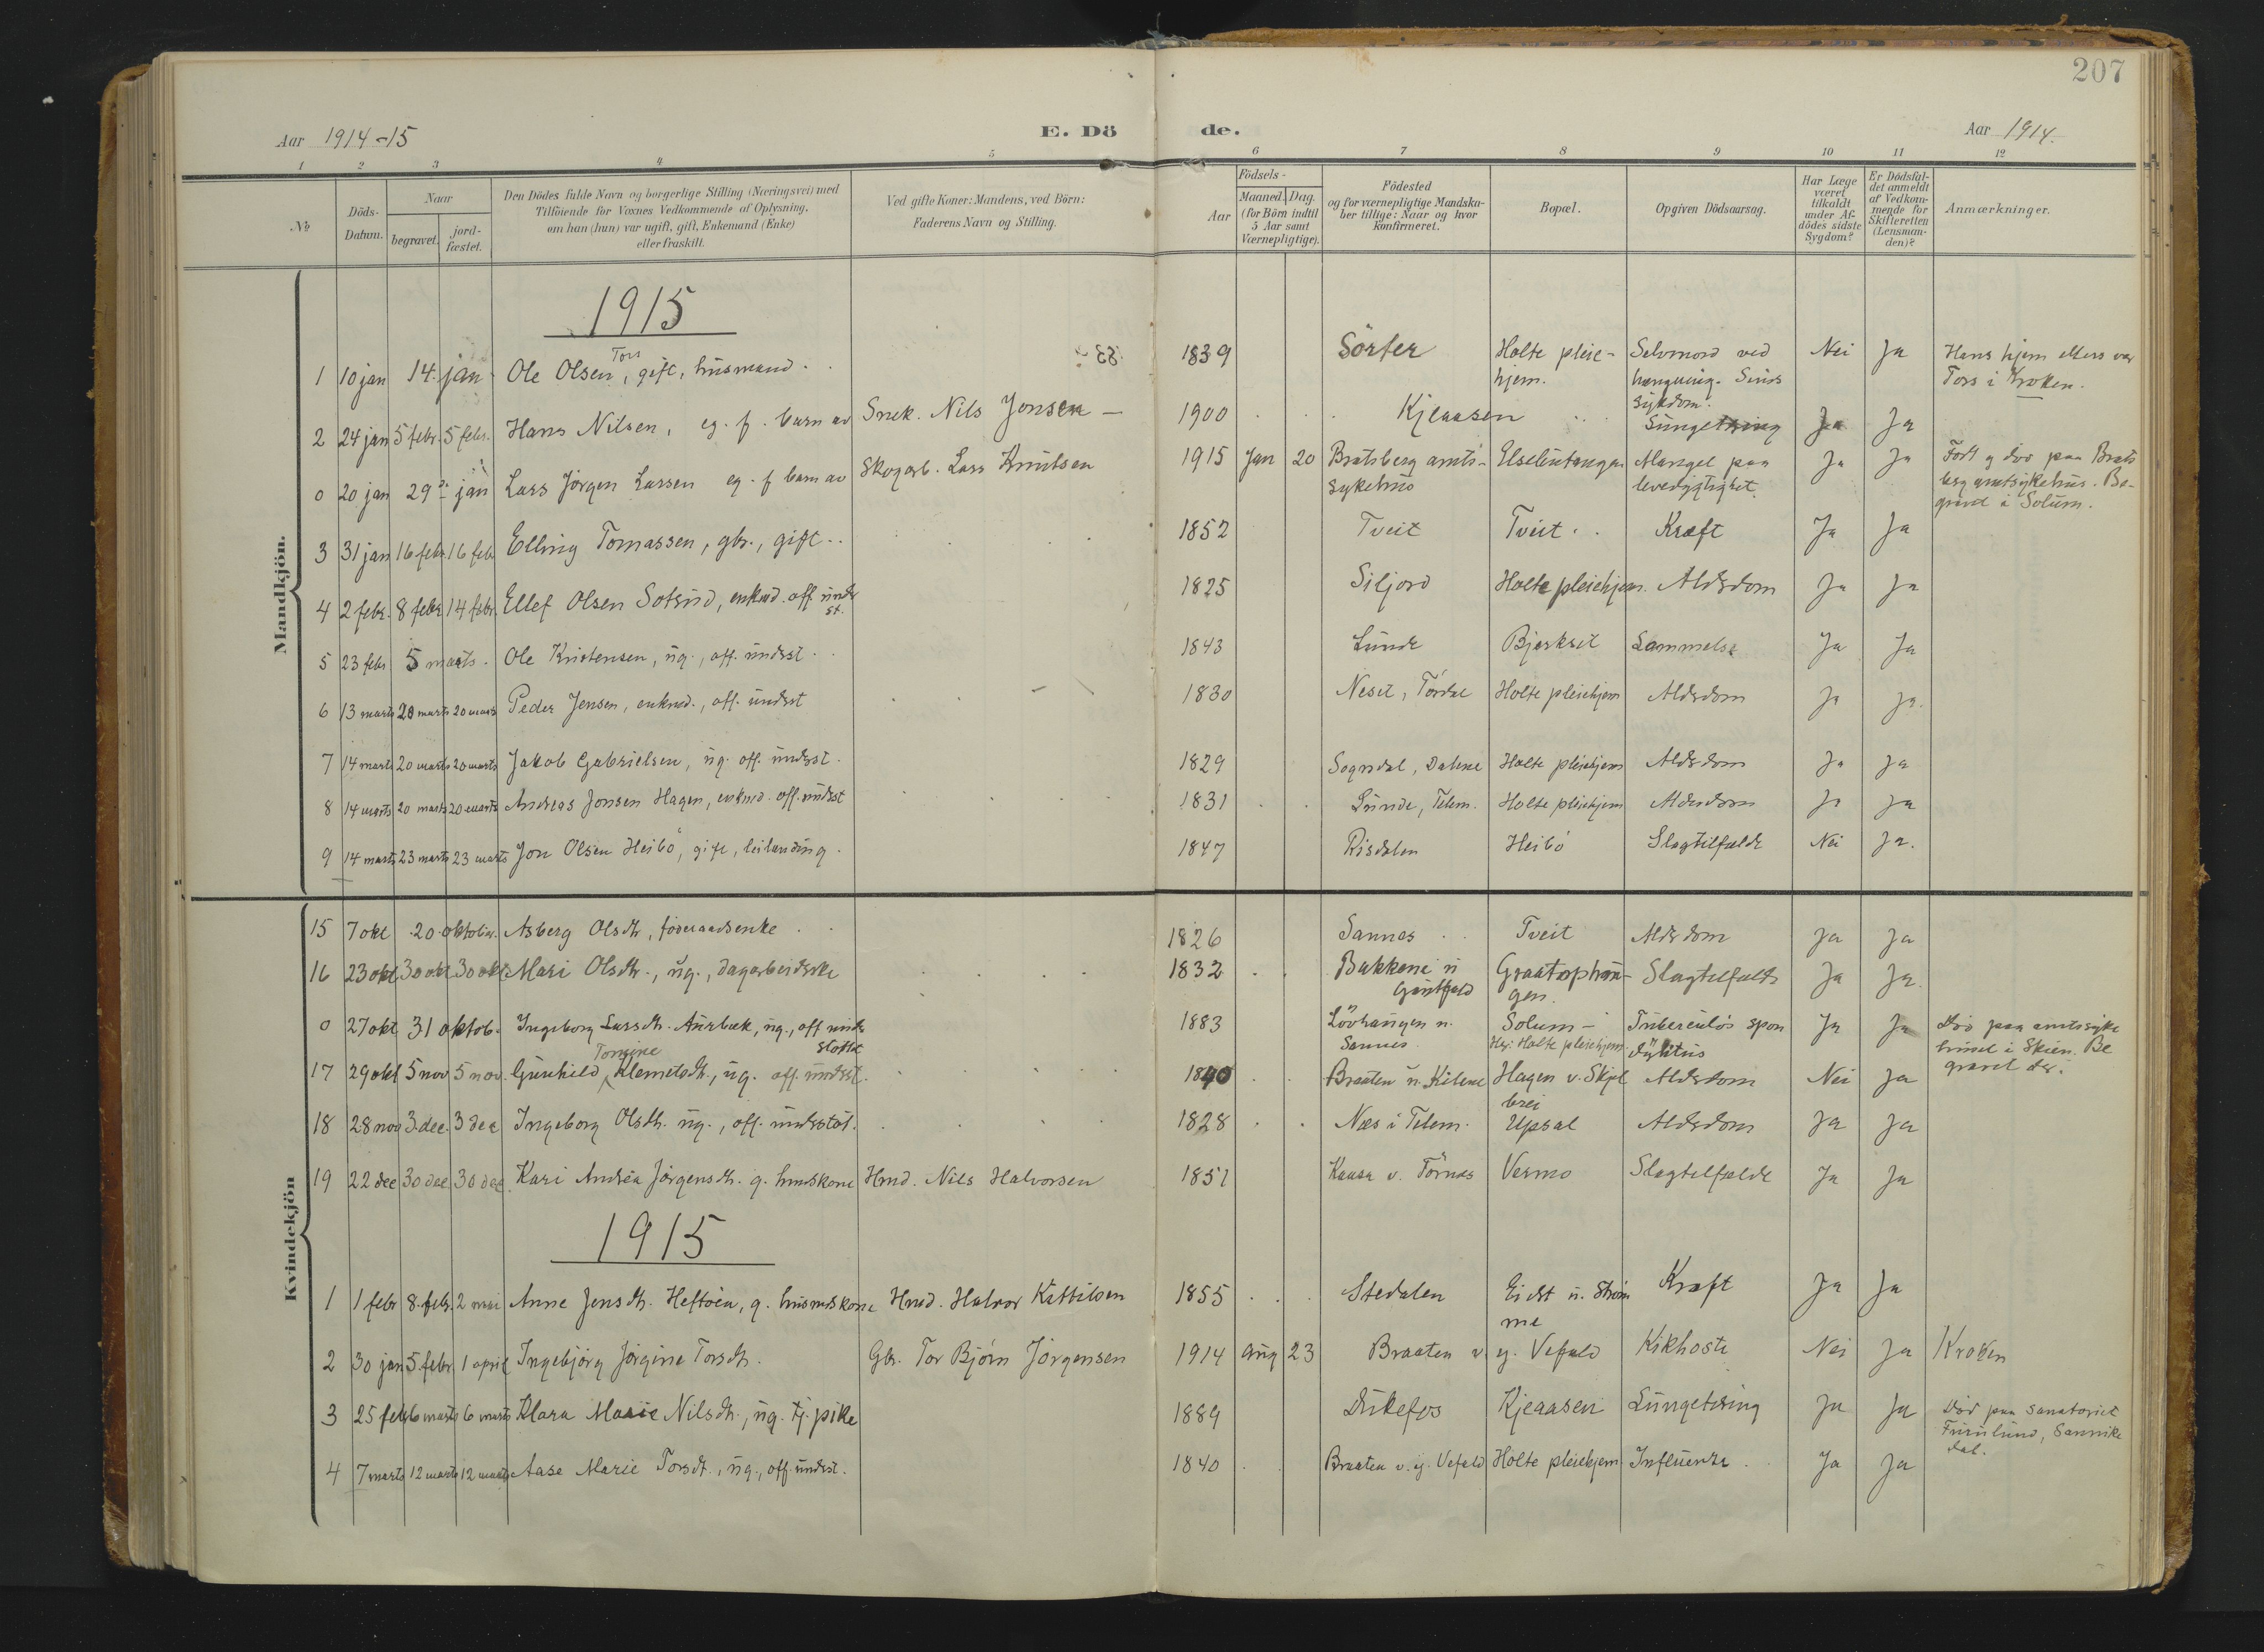 207
Aar 1914-15
E. Dö
de.
Aar 1914.
1 2 3 4 5 6 7 8 9 10 11 12
No
Döds-Datum.
Naar
begravet.
jord-fæstet.
Den Dödes fulde Navn og borgerlige Stilling (Næringsvei) med
Tilföiende for Voxnes Vedkommende af Oplysning,
om han (hun) var ugift, gift, Enkemand (Enke)
eller fraskilt.
Ved gifte Koner: Mandens, ved Börn:
Faderens Navn og Stilling.
Födsels-
Aar
Maaned. Dag.
(for Börn indtil
5 Aar samt
Værnepligtige).
Födested
og for værnepligtige Mandska-
ber tillige: Naar og hvor
konfirmeret.
Bopæl.
Opgiven Dödsaarsag.
Har Læge
været
tilkaldt
under Af-
dödes sidste
Sygdom?
Er Dödsfal-
det anmeldt
af Vedkom-
mende for
Skifteretten
(Lensman-
den)?
Anmærkninger.
Mandkjön.
1915
1 10 jan 14. jan Ole Olsen Tors, gift, husmand. 1839 Sörfer Holte pleie-hjem. Selvmord ved hængning. Sinds sykdom. Nei Ja Hans hjem ellers var Tors i Kroken.
2 24 jan 5 febr. 5 febr. Hans Nilsen, eg. f. barn av Snek. Nils Jonsen 1900 Kjeaasen Lungetæring Ja Ja
0 20 jan 29 jan Lars Jörgen Larsen eg. f barn av Skogarb. Lars Knutsen 1915 Jan 20 Bratsberg amts-sykehus Mangel paa levedygtighet. Ja Ja Födt og död paa Brats berg amtsykehus. Be-gravet i Solum.
3 31 jan 16 febr. 16 feb Elling Tomassen, gbr., gift. 1852 Tveit Tveit Kræft Ja Ja
4 2 febr. 8 febr 14 febr. Ellef Olsen Sotrud, enkmd. off underst. 1825 Siljord Holte pleiehjem. Alderdom Ja Ja
5 23 febr 5 marts. Ole Kristensen, ug., off. underst. 1843 Lunde Bjerkset Lammelse Ja Ja
6 13 marts 20 marts 20 marts Peder Jensen, enkmd., off. underst 1830 Neset, Tördal Holte pleiehjem Alderdom Ja Ja.
7 14 marts 20 marts 20 marts Jakob Gabrielsen, ug. off. underst. 1829 Sogndal, Dalene Holte pleiehjem Alderdom Ja Ja
8 14 marts 20 marts 20 marts Andreas Jonsen Hagen, enkmd. off. underst 1831 Lunde, Telem. Holte pleiehjem Alderdom Ja Ja
9 14 marts 23 marts 23 marts Jon Olsen Heibö, gift, leilending. 1847 Risdalen Heibö Slagtilfælde Nei Ja.
Kvindekjön
15 7 okt 20. oktober. Asberg Olsdtr, föderaadsenke 1826 Sannes Tveit Alderdom Ja Ja
16 23 okt 30 okt 30 okt Mari Olsdtr., ug., dagarbeiderske 1832 Bakkene u Slagtilfælde Ja Ja.
0 27 okt 31 oktob. Ingeborg Larsdtr. Aurbæk, ug., off under stöttet 1883 Lövhaugen u. Sannes Solum - Holte pleiehjem. Tuberculös spon dylitus Ja Ja Död paa amtssyke huset i Skien. Be gravet der.
17 29 okt 5 nov 5 nov. Gunhild Tomine Klemetsdtr., ug. off. underst. 1840 Braaten u. Kilene Hagen v. Alderdom Nei Ja
18 28 nov 3. dec. 3 dec Ingeborg Olsdtr. ug., off. understöt. 1828 Næs i Telem. Upsal Alderdom Ja Ja
19 22 dec 30 dec. 30 dec. Kari Andréa Jörgensdtr. g. hmdskone Hmd. Nils Halvorsen 1851 Kaasa v. Törnes Vermo Slagtilfælde Ja Ja
1915
1 1 febr 8. febr. 2 mai Anne Jensdtr. Heftöen, g. husmdskone Hmd. Halvor Kittilsen 1855 Stedalen Eidet u. Ström me Kræft Ja Ja
2 30 jan 5 febr. 1 april Ingebjörg Jörgine Torsdtr. Gbr. Tor Björn Jörgensen 1914 Aug 23 Braaten v. y. Vefald Kikhoste Nei Ja Kroken
3 25 febr 6 marts 6 marts Klara Marie Nilsdtr., ug. tj. pike 1889 Dukefos Kjeaasen Lungetæring Ja Ja Död paa sanatoriet Furulund, Sannike dal.
4 7 marts 12 marts 12 marts Aase Marie Torsdt., ug., off. underst. 1840 Braaten v. y. Vefald Holte pleiehjem Influenza Ja Ja